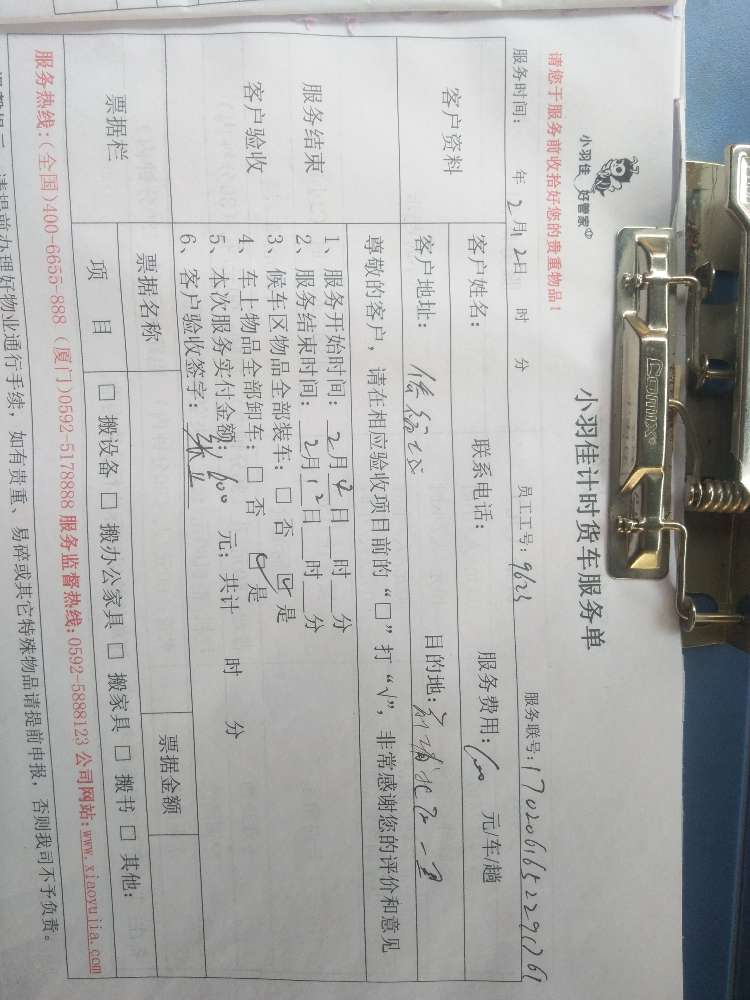 小羽佳 好管家
小羽佳计时货车服务单
请您于服务前收拾好您的贵重物品！
服务联号：
服务时间： 年 2月12日 时 分 员工工号：9623
客户资料
客户姓名： 联系电话： 服务费用： 元/车/趟
客户地址： 目的地：
尊敬的客户，请在相应验收项目前的“□”打“√”，非常感谢您的评价和意见
服务结束
客户验收
1、服务开始时间：2月 日 时 分
2、服务结束时间：2月12日 时 分
3、候车区物品全部装车：□ 否 ☑ 是
4、车上物品全部卸车：□ 否 ☑ 是
5、本次服务实付金额：600 元；共计 时 分
6、客户验收签字：
票据栏
票据名称 票据金额
项目 □ 搬设备 □ 搬办公家具 □ 搬家具 □ 搬书 □ 其他：
服务热线：(全国)400-6655-888 (厦门)0592-5178888 服务监督热线：0592-5888123 公司网站：www.xiaoyujia.com
请提前办理好物业通行手续，如有贵重、易碎或其它特殊物品请提前申报，否则我司不予负责。
Comix